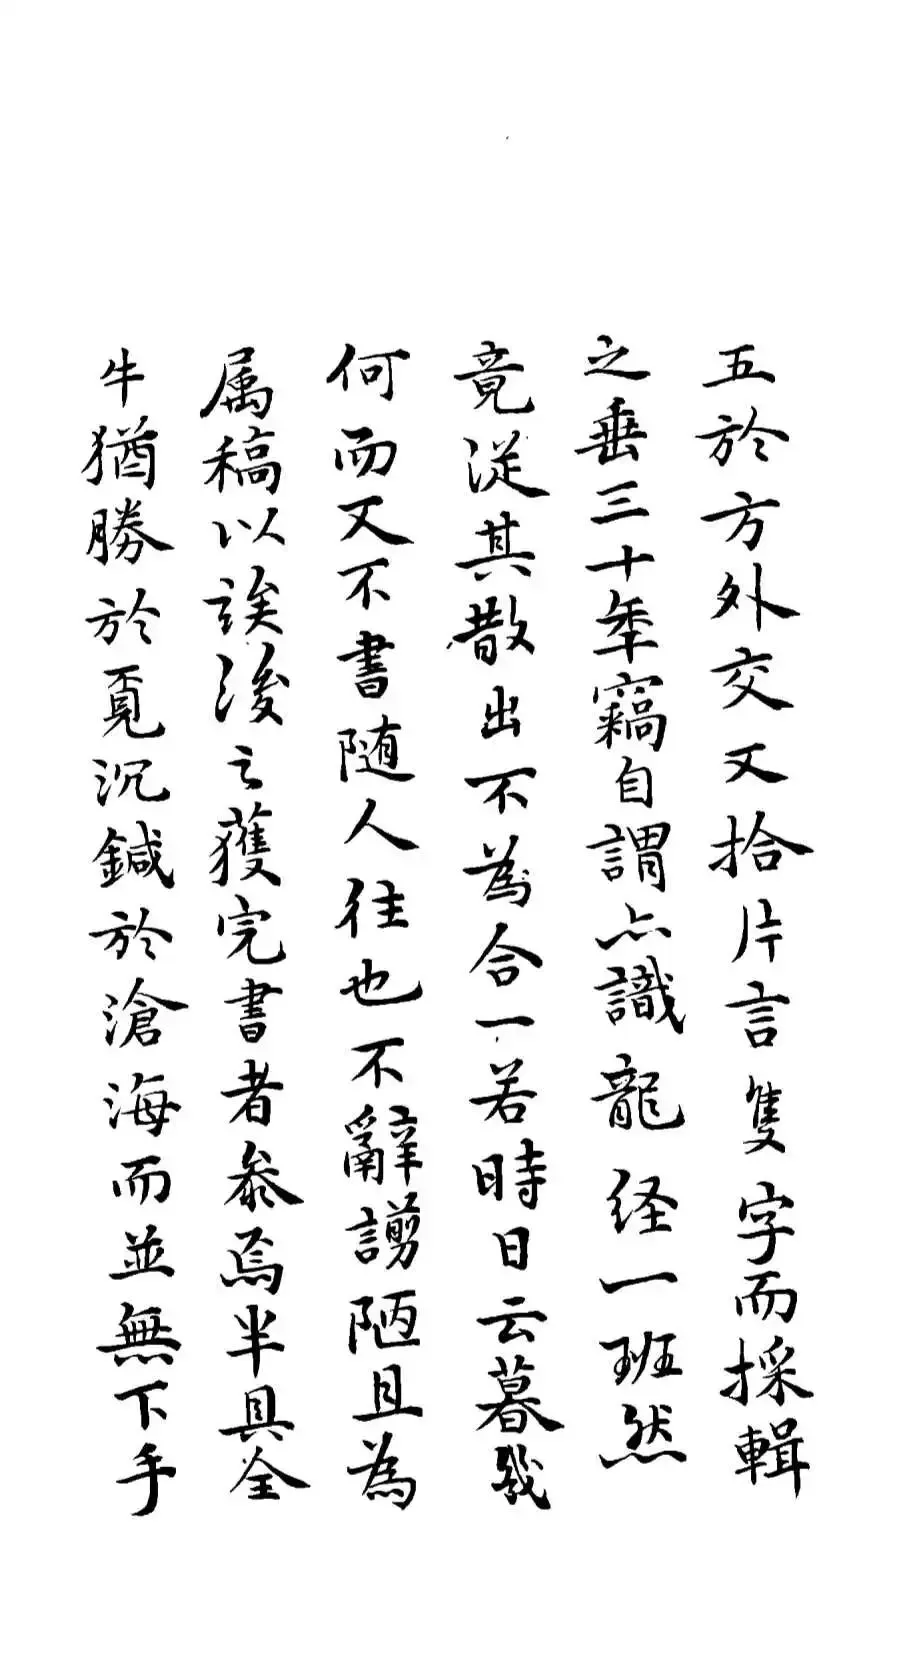 五於方外交又拾片言隻字而採輯
之垂三十年竊自謂亦識龍経一班然
竟從其散出不為合一若時日云暮幾
何而又不書随人往也不辭謭陋且為
属稿以誒後之獲完書者叅焉半具全
牛猶勝於覔沉鍼於滄海而並無下手